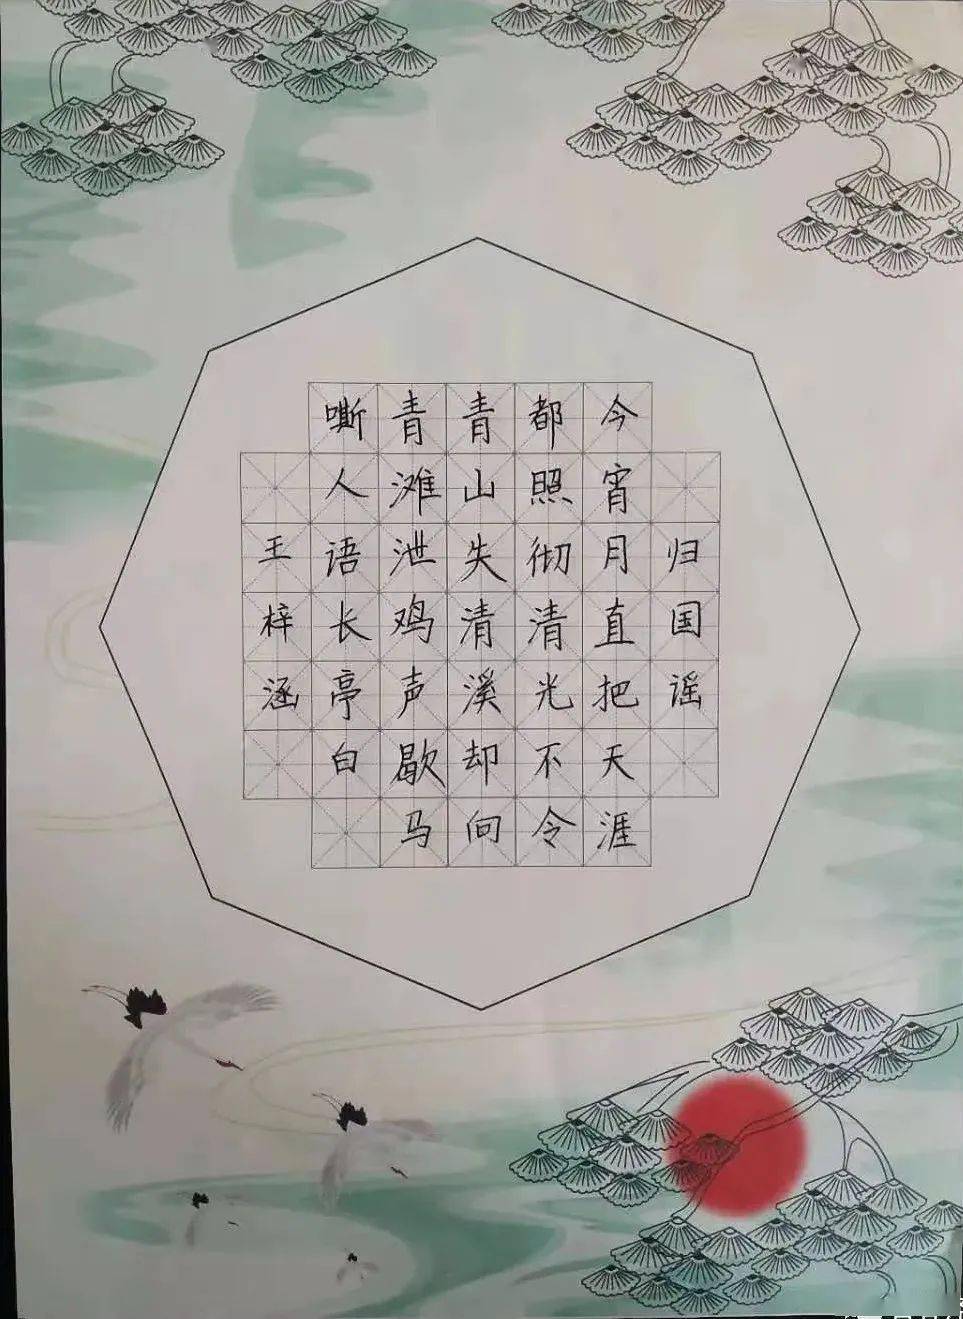 归国谣
今宵月直把天涯
都照彻清光不令
青山失清溪却向
青滩泄鸡声歇马
嘶人语长亭白
王梓涵